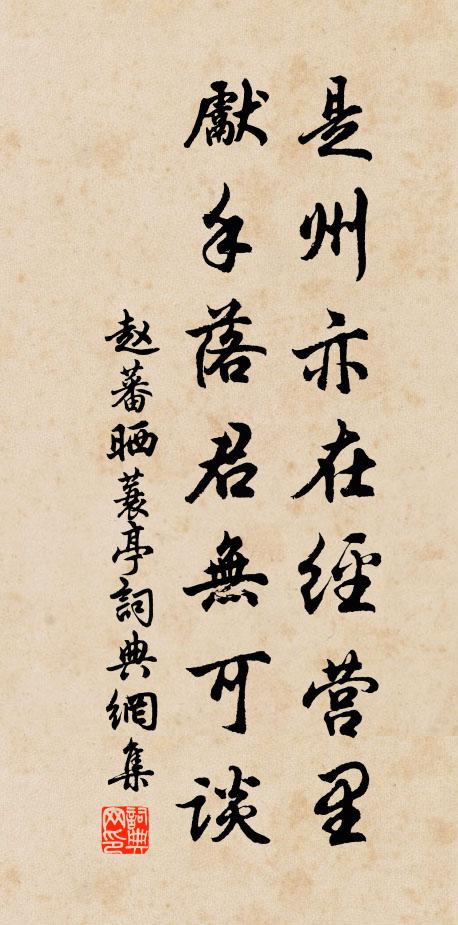 是州亦在經营里
獻手落君無可談
赵蕃晒蓑亭詞典網集
詞典网印